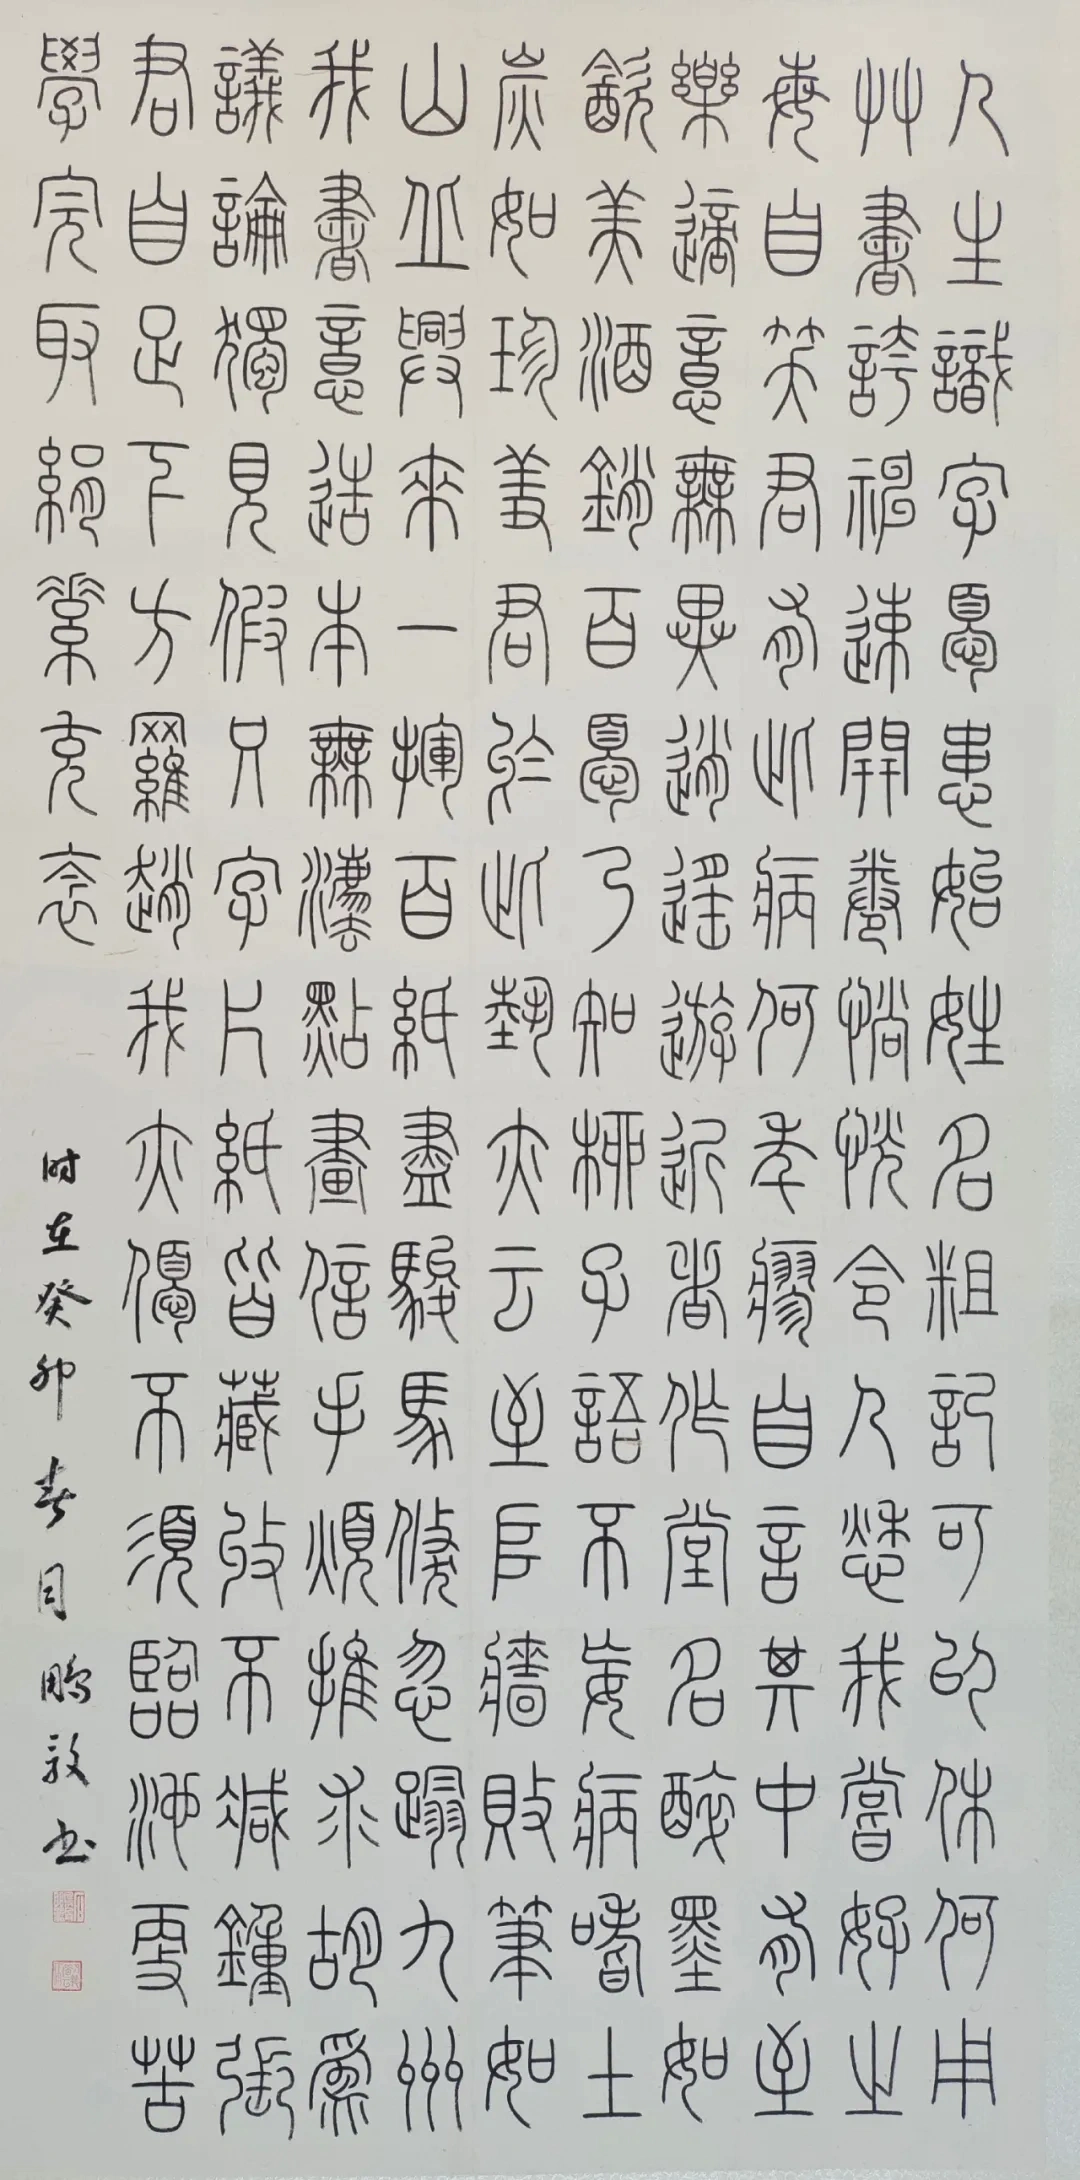 人生識字憂患始姓名粗記可以休何用
艸書誇神速開卷惝怳令人愁我嘗好之
每自笑君有此病何年瘳自言其中有至
樂適意無異逍遙遊近者作堂名醉墨如
飲美酒銷百憂乃知柳子語不妄病嗜土
炭如珍羞君於此藝亦云至𠂤牆敗筆如
山丘興來一揮百紙盡駿馬倏忽蹋九州
我書意造本無灋點畫信手煩推求胡為
議論獨見假只字片紙皆藏收不減鍾張
君自足下方羅趙我亦優不須臨池更苦
學完取絹素充衾
时在癸卯春月鹏书